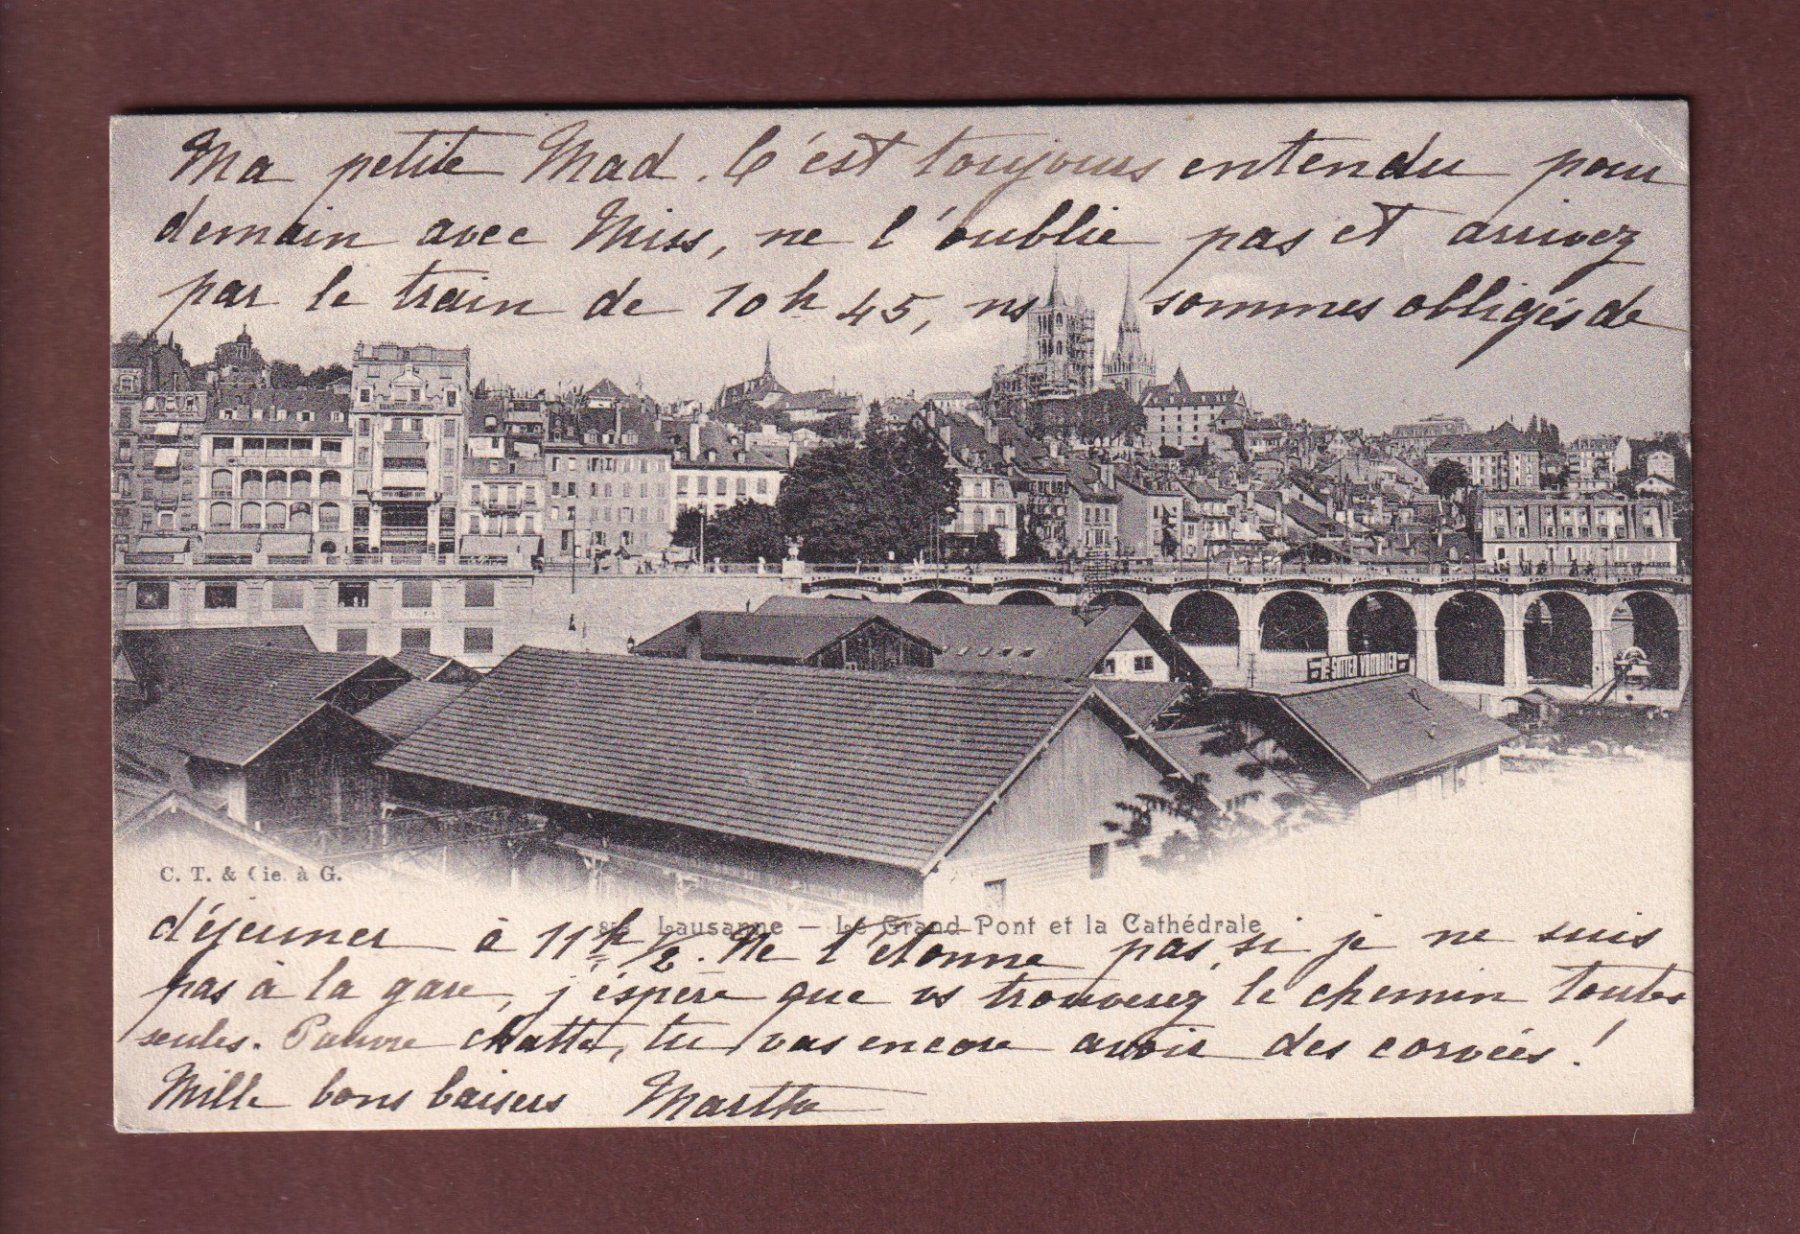 Ma petite Mad. C'est toujours entendu pour
demain avec Miss, ne l'oublie pas et arrivez
par le train de 10h 45, ns sommes obligés de
SUTER
C. T. & Cie. à G.
Lausanne — Le Grand-Pont et la Cathédrale
déjeuner à 11h 1/2. Ne t'étonne pas, si je ne suis
pas à la gare, j'éspère que vs trouverez le chemin toutes
seules. Pauvre chatte, tu vas encore avoir des corvées!
Mille bons baisers Marthe